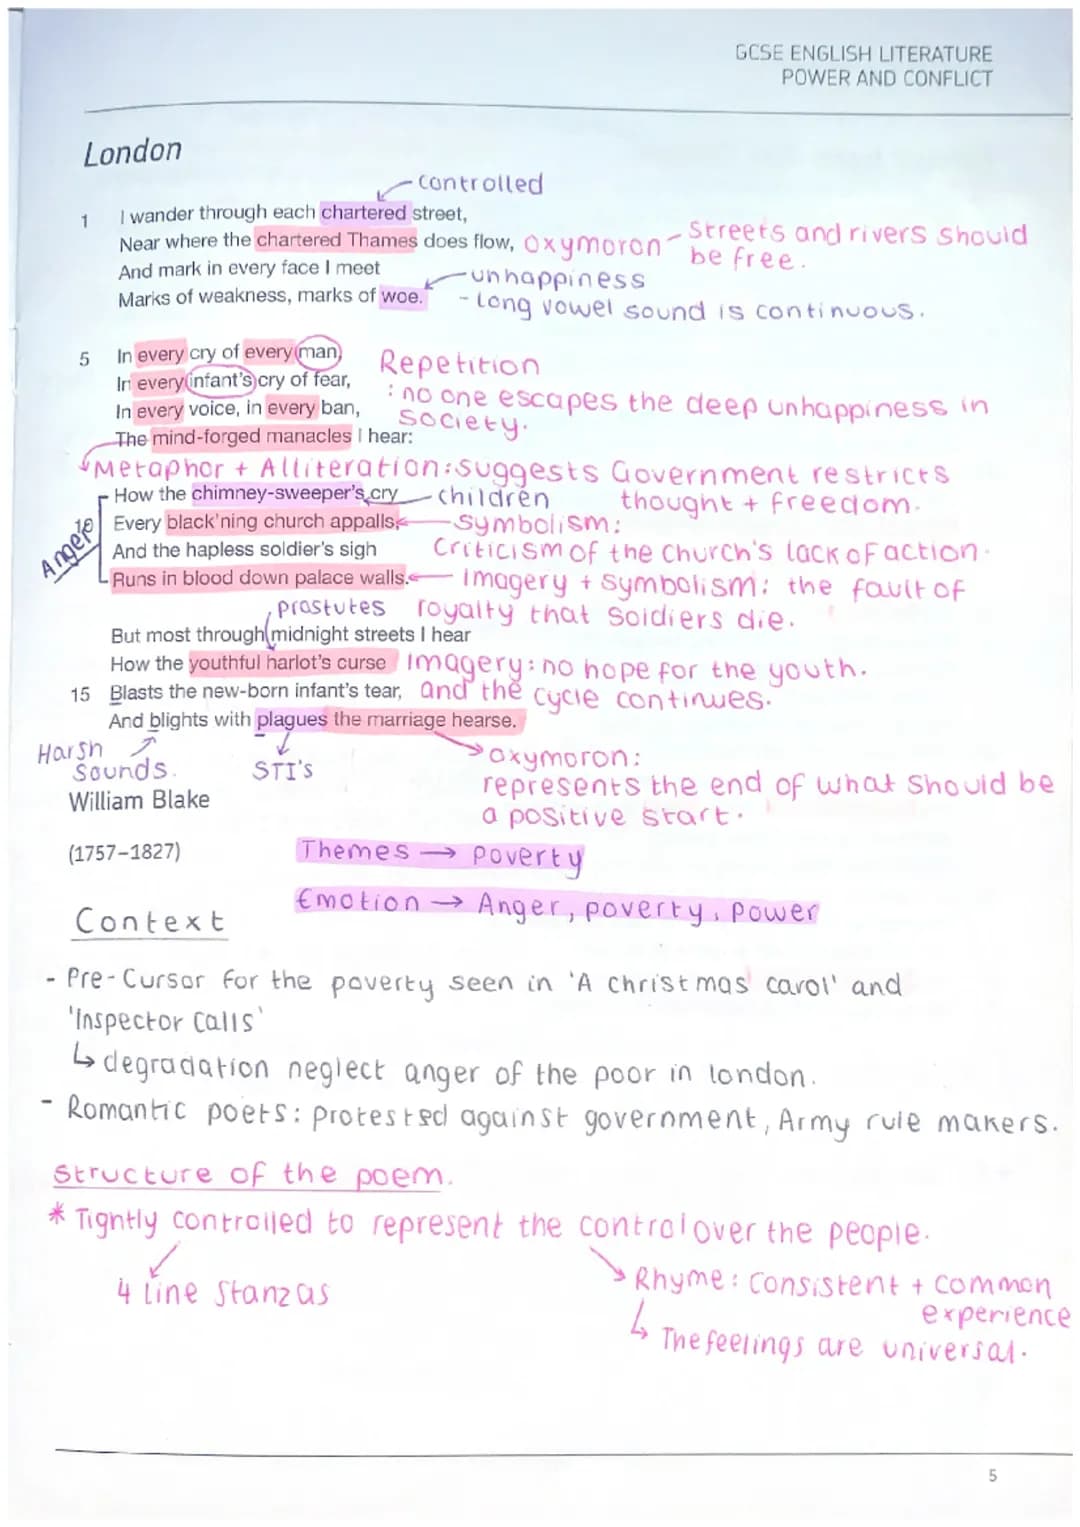 GCSE ENGLISH LITERATURE
POWER AND CONFLICT
London
controlled
1 I wander through each chartered street,
Near where the chartered Thames does flow, oxymoron - Streets and rivers should be free.
And mark in every face I meet
unhappiness
Marks of weakness, marks of woe. - Long vowel sound is continuous.
5 In every cry of every man,
Repetition
In every infant's cry of fear,
: no one escapes the deep unhappiness in society.
In every voice, in every ban,
The mind-forged manacles I hear:
Metaphor + Alliteration: suggests Government restricts thought + freedom.
How the chimney-sweeper's cry - children
10 Every black'ning church appalls, Symbolism:
Anger
And the hapless soldier's sigh Criticism of the church's lack of action.
Runs in blood down palace walls. Imagery + symbolism: the fault of
prostutes royalty that soldiers die.
But most through midnight streets I hear
How the youthful harlot's curse Imagery: no hope for the youth.
15 Blasts the new-born infant's tear, and the cycle continues.
And blights with plagues the marriage hearse.
Harsh Sounds.
STI's
oxymoron:
represents the end of what should be
a positive start.
William Blake
(1757–1827)
Themes → poverty
Emotion → Anger, poverty, Power
Context
- Pre-Cursor for the poverty seen in 'A christmas carol' and
'Inspector Calls'
↳ degradation neglect anger of the poor in london.
- Romantic poets: protested against government, Army rule makers.
Structure of the poem.
* Tightly controlled to represent the control over the people.
4 Line Stanzas
Rhyme: Consistent + common
experience
↳ The feelings are universal.
5